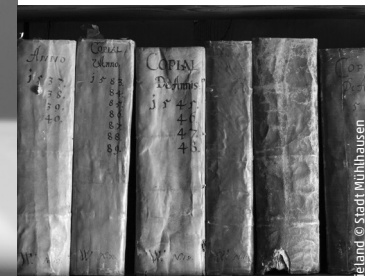 ANNO
1537.
38.
39.
40.
COPIAL
Anno
1583.
84.
85.
86.
87.
88.
89.
COPIAL
De Annis
1545.
46.
47.
48.
ieland © Stadt Mühlhausen